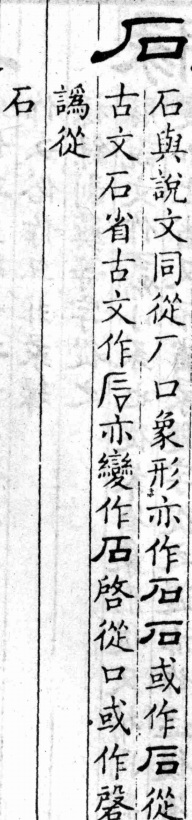 石
石與說文同從厂口象形亦作石石或作后從
古文石省古文作𠩺亦變作石啓從口或作磬
譌從
石